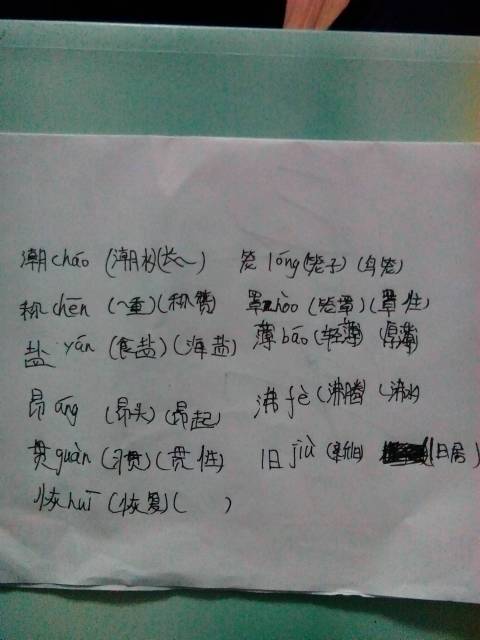 潮cháo (潮水)(长~) 笼lóng(笼子)(鸟笼)
称chēn (~重)(称赞) 罩zhào(笼罩)(罩住)
盐 yán (食盐)(海盐) 薄báo(轻薄)(厚薄)
昂áng (昂头)(昂起) 沸fè(沸腾)(沸水)
贯guàn (习贯)(贯性) 旧jiù(新旧) (旧居)
恢huī(恢复)( )